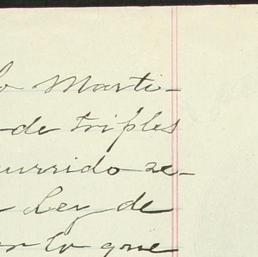 lo Marti-
de triples
currido se-
Ley de
por lo que